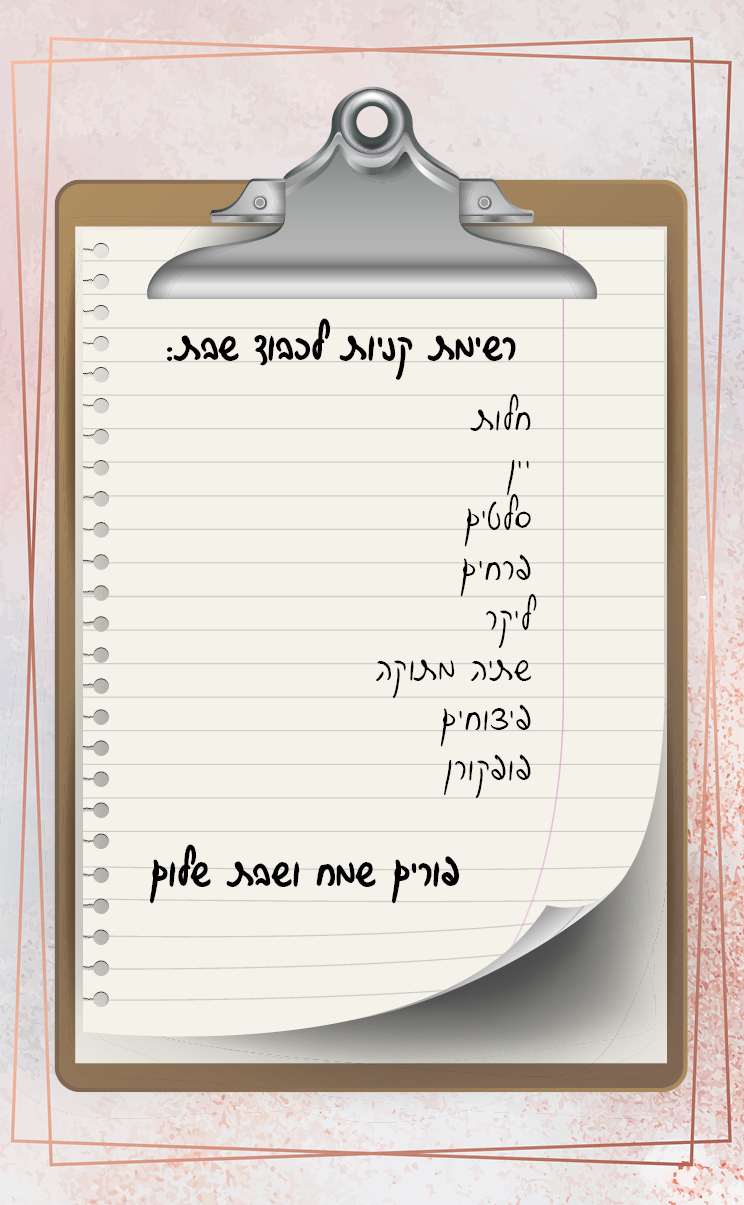 רשימת קניות לכבוד שבת:
חלות
יין
סלטים
פרחים
ליקר
שתיה מתוקה
פיצוחים
פופקורן
פורים שמח ושבת שלום